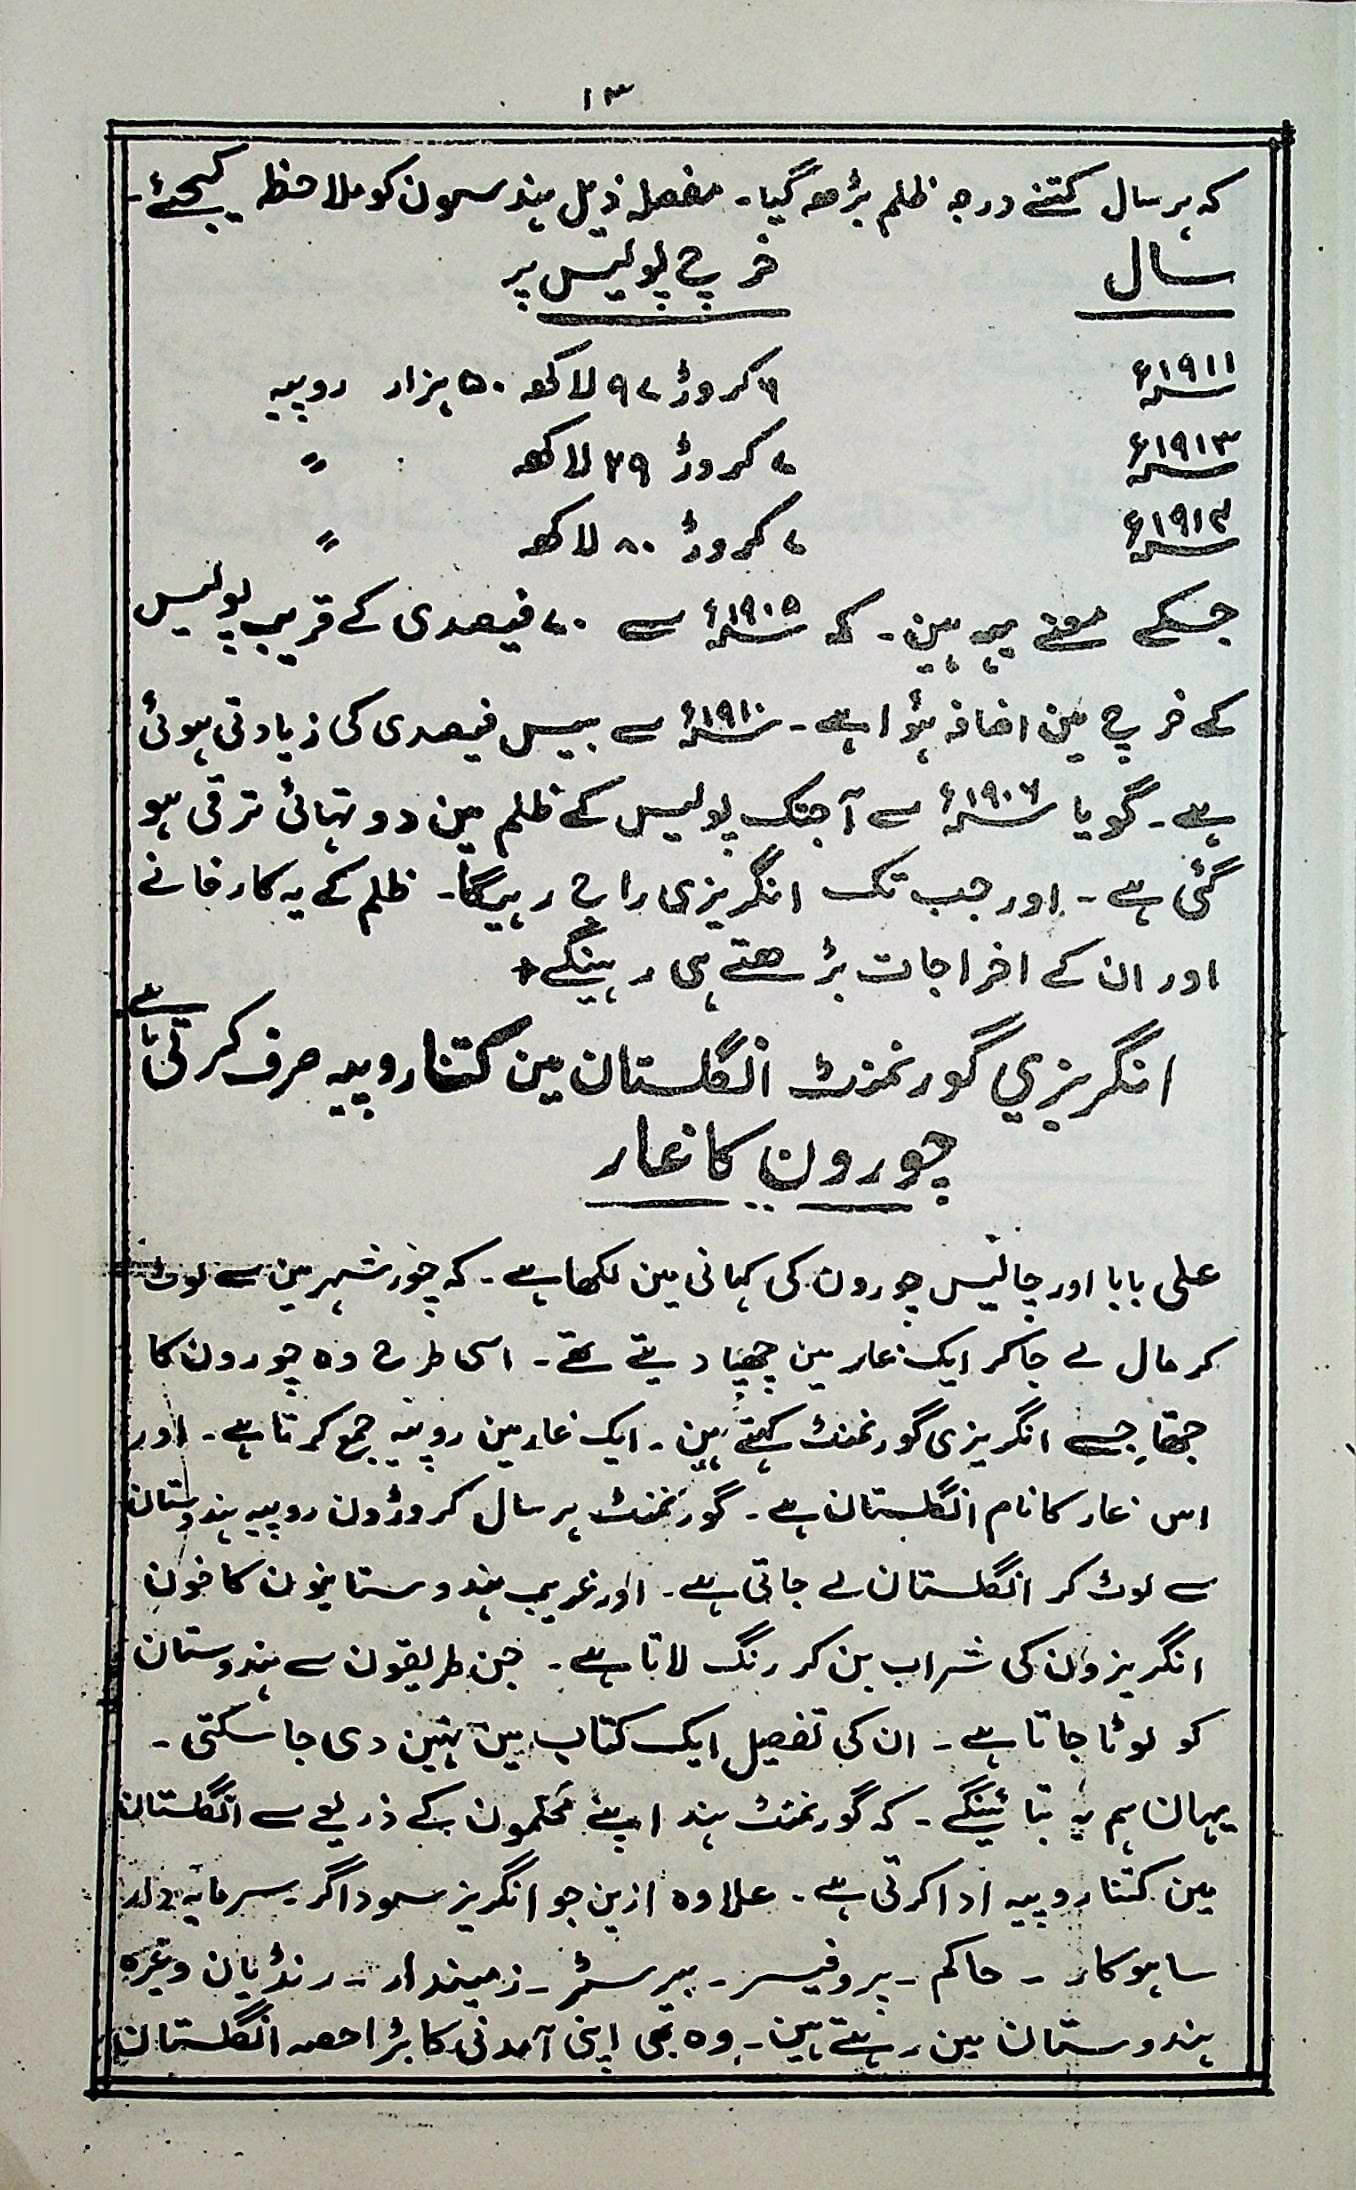 ۱۳
کہ ہر سال کتنے درجہ ظلم بڑھ گیا۔ مفصلہ ذیل ہندسون کو ملاحظہ کیجئے۔
سال خرچ پولیس پر
سنہ ۱۹۱۱ء ۶ کروڑ ۹۷ لاکھ ۵۰ ہزار روپیہ
سنہ ۱۹۱۳ء ۷ کروڑ ۲۹ لاکھ 〃
سنہ ۱۹۱۴ء ۷ کروڑ ۸۰ لاکھ 〃
جسکے معنے یہہ ہین۔ کہ سنہ ۱۹۰۵ء سے ۷۰ فیصدی کے قریب پولیس
کے خرچ مین اضافہ ہؤا ہے۔ سنہ ۱۹۱۰ء سے بیس فیصدی کی زیادتی ہوئی
ہے۔ گویا سنہ ۱۹۰۶ء سے آجتک پولیس کے ظلم مین دو تہائی ترقی ہو
گئی ہے۔ اور جب تک انگریزی راج رہیگا۔ ظلم کے یہ کارخانے
اور ان کے اخراجات بڑھتے ہی رہینگے+
انگریزی گورنمنٹ انگلستان مین کتنا روپیہ صرف کرتی ہے
چورون کا غار
علی بابا اور چالیس چورون کی کہانی مین لکھا ہے۔ کہ چور شہر مین سے لوٹ
کر مال لے جا کر ایک غار مین چھپا دیتے تھے۔ اسی طرح وہ چورون کا
جتھا جسے انگریزی گورنمنٹ کہتے ہین۔ ایک غار مین روپیہ جمع کرتا ہے۔ اور
اس غار کا نام انگلستان ہے۔ گورنمنٹ ہر سال کروڑون روپیہ ہندوستان
سے لوٹ کر انگلستان لے جاتی ہے۔ اور غریب ہندوستانیون کا خون
انگریزون کی شراب بن کر رنگ لاتا ہے۔ جن طریقون سے ہندوستان
کو لوٹا جاتا ہے۔ ان کی تفصیل ایک کتاب مین نہین دی جا سکتی۔
یہان ہم یہ بتائینگے۔ کہ گورنمنٹ ہند اپنے محکمون کے ذریعے سے انگلستان
مین کتنا روپیہ ادا کرتی ہے۔ علاوہ ازین جو انگریز سوداگر۔ سرمایہ دار
ساہوکار۔ حاکم۔ پروفیسر۔ بیرسٹر۔ زمیندار۔ رنڈیان وغیرہ
ہندوستان مین رہتے ہین۔ وہ بھی اپنی آمدنی کا بڑا حصہ انگلستان